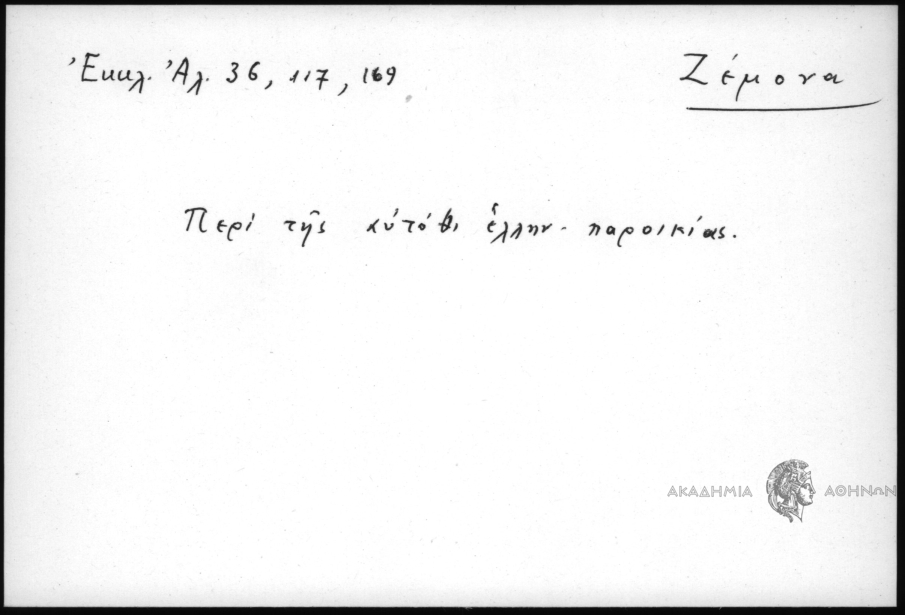 Ἐκκλ. Ἀλ. 36, 117, 169
Ζέμονα
Περὶ τῆς αὐτόθι ἑλλην. παροικίας.
ΑΚΑΔΗΜΙΑ ΑΘΗΝΩΝ